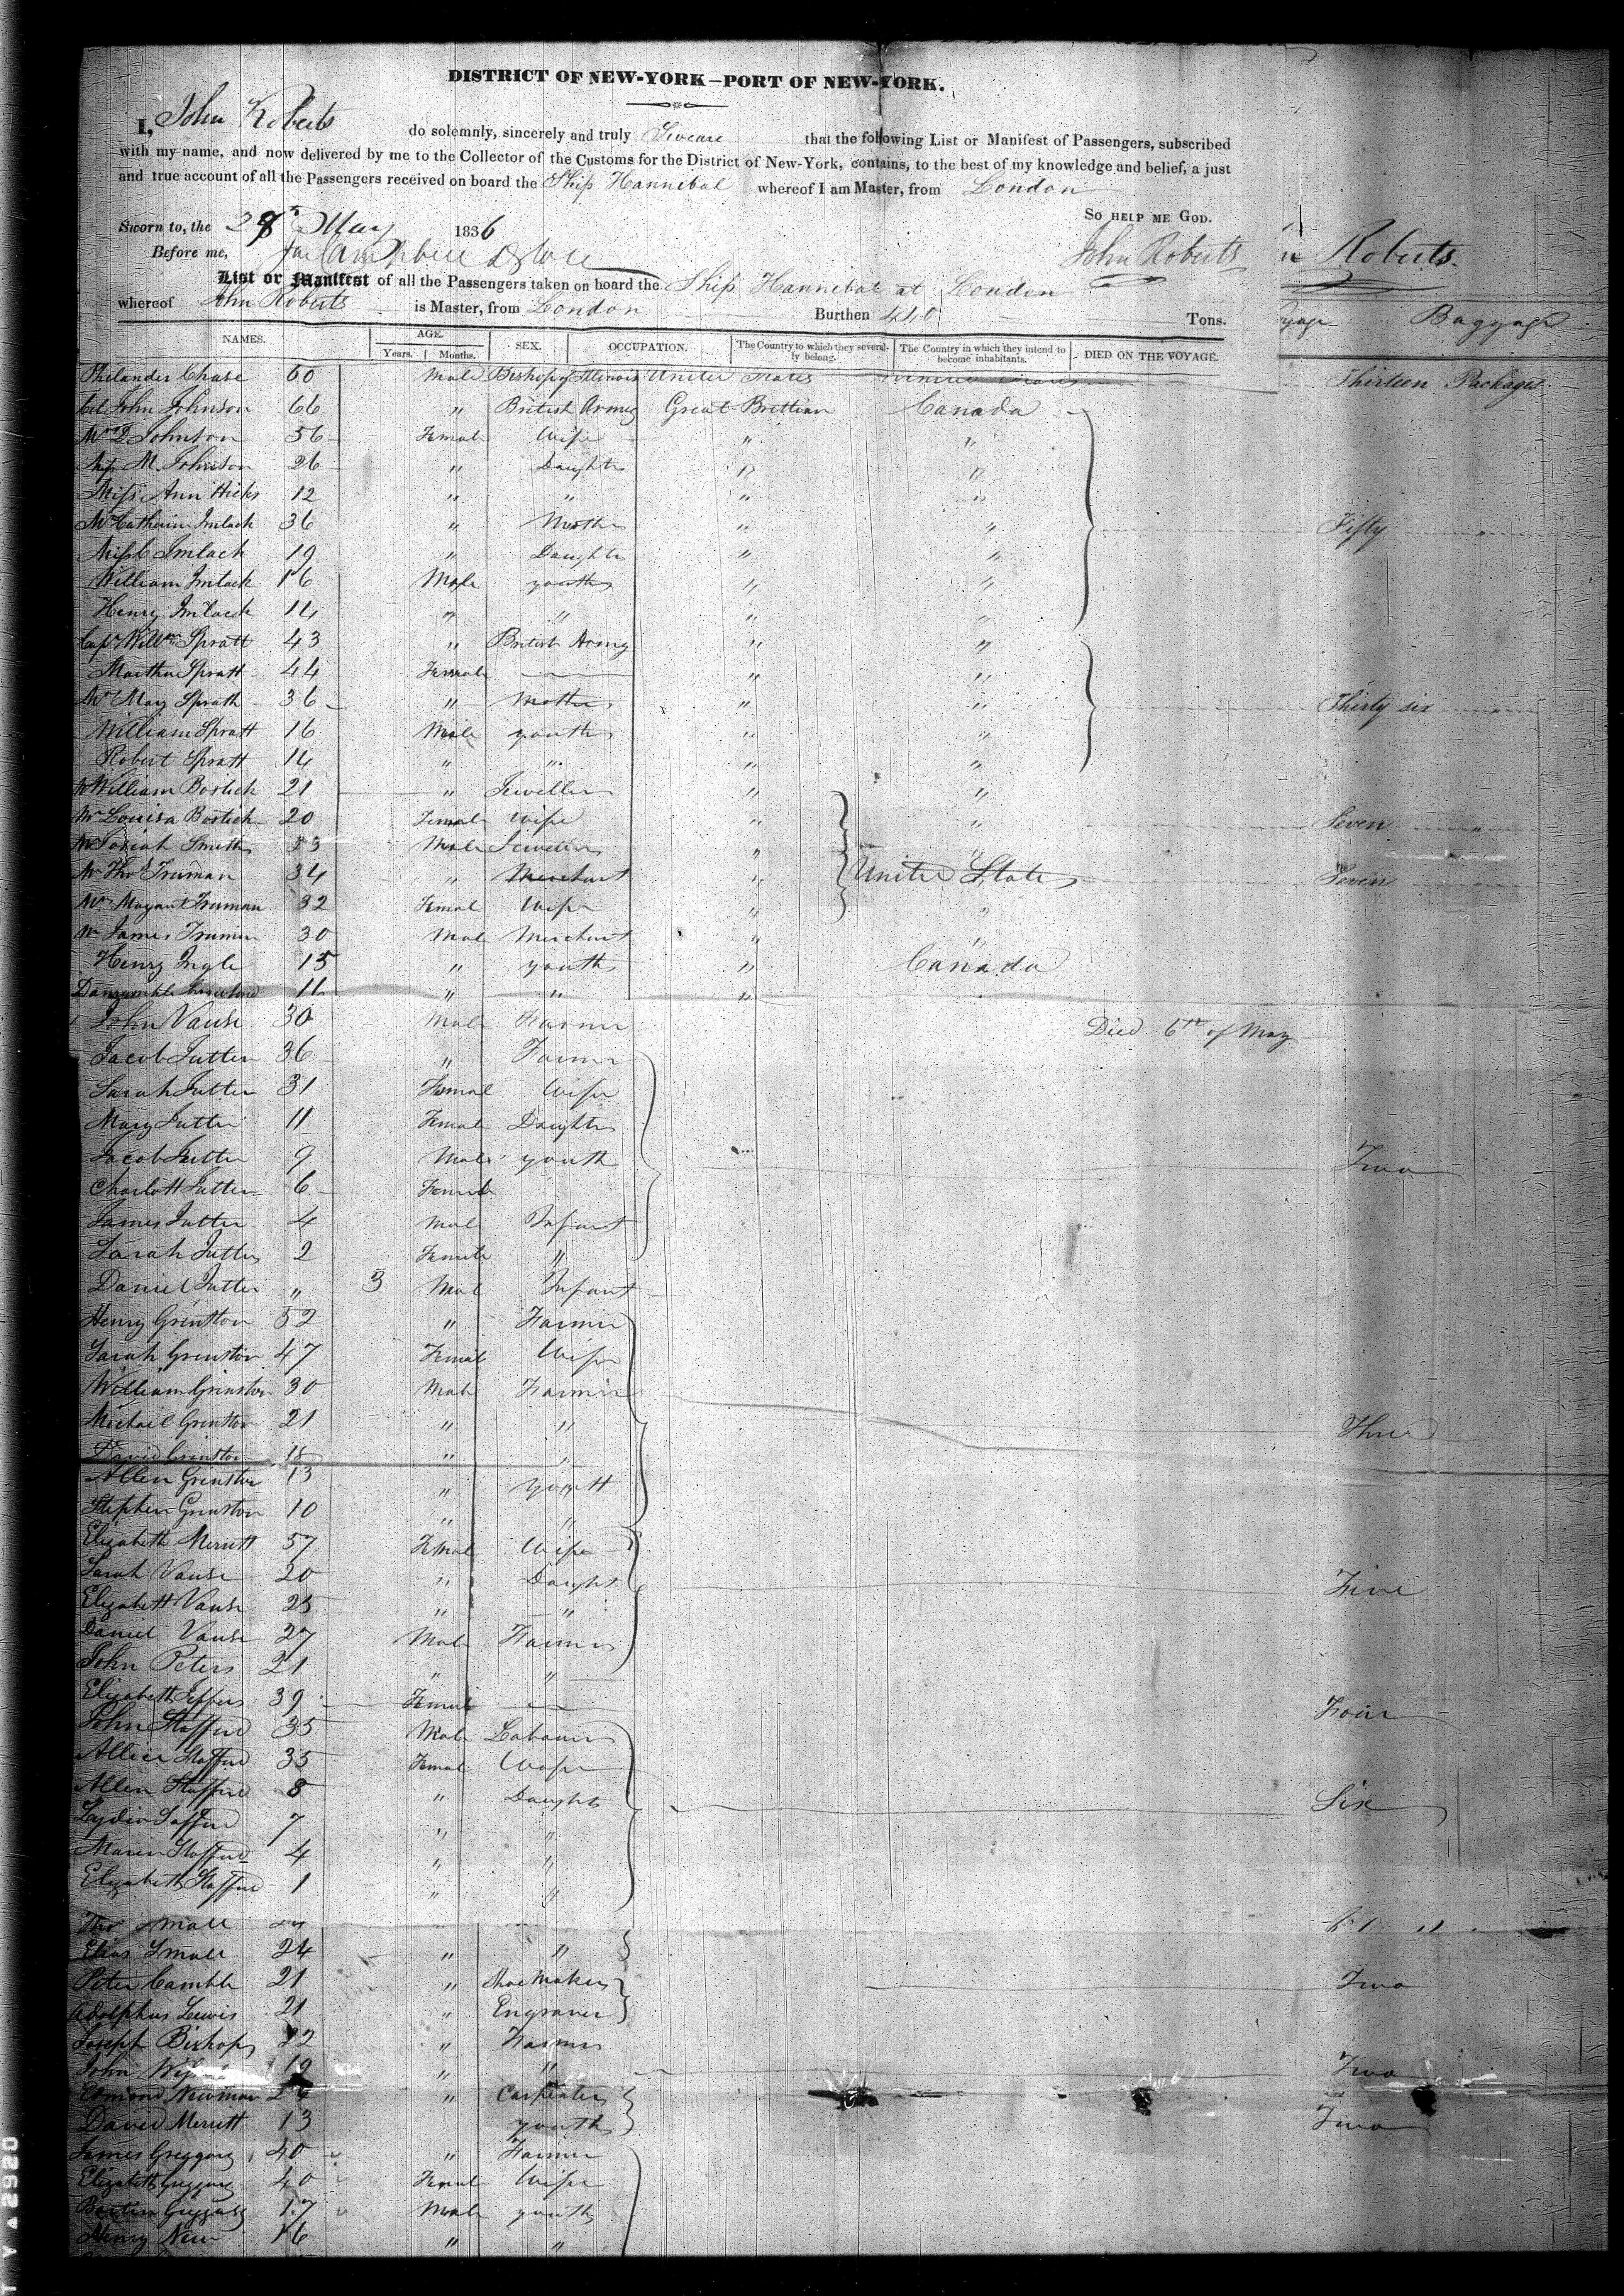 DISTRICT OF NEW-YORK—PORT OF NEW-YORK.
I, John Roberts do solemnly, sincerely and truly Swear that the following List or Manifest of Passengers, subscribed
with my name, and now delivered by me to the Collector of the Customs for the District of New-York, contains, to the best of my knowledge and belief, a just
and true account of all the Passengers received on board the Ship Hannibal whereof I am Master, from London
SO HELP ME GOD.
Sworn to, the 28 May 1836
Before me, John Roberts n Roberts
List or Manifest of all the Passengers taken on board the Ship Hannibal at London
whereof John Roberts is Master, from London Burthen 440 Tons. Baggage
NAMES. AGE. SEX. OCCUPATION. The Country to which they severally belong. The Country in which they intend to become inhabitants. DIED ON THE VOYAGE.
Years. Months.
Philander Chase 60 Male Bishop of Illinois United States United States Thirteen Packages
Col John Johnson 66 " British Army Great Brittian Canada
Mrs D Johnson 56 Female Wife " "
Miss M. Johnson 26 " Daughter " "
Miss Ann Hicks 12 " " " "
Mrs Catherine Imlack 36 " Mother " " Fifty "
Miss C Imlack 19 " Daughter " "
William Imlack 16 Male youth " "
Henry Imlack 14 " " " "
Capt Willm Spratt 43 " British Army " "
Martha Spratt 44 Female — " "
Mrs Mary Spratt 36 " Mother " " Thirty six "
William Spratt 16 Male youth " "
Robert Spratt 14 " " " "
Mr William Bostick 21 " Jeweller " "
Mrs Louisa Bostick 20 Female Wife " " Seven "
Mr Josiah Smith 33 Male Jeweler " "
Mr Thos Truman 34 " Merchant " United States Seven "
Mrs Margant Truman 32 Femal Wife " "
Mr James Truman 30 Mal Merchant " "
Henry Ingle 15 " youth " Canada
11 " " "
John Vause 30 Male Farmer Died 6th of May
Jacob Jutter 36 " Farmer
Sarah Jutter 31 Femal Wife
Mary Jutter 11 Female Daughter
Jacob Jutter 9 Male youth Two
Charlott Jutter 6 Female
James Jutter 4 Male Infant
Sarah Jutter 2 Female "
Daniel Jutter " 3 Mal Infant
Henry Grinston 52 " Farmer
Sarah Grinston 47 Femal Wife
William Grinston 30 Male Farmer
Michail Grinston 21 " " Three
David Grinston 18 " "
Allen Grinston 13 " youtt
Stephen Grinston 10 " "
Elizabeth Merritt 57 Femal Wife
Sarah Vause 20 " Daught Five
Elizabett Vause 25 " "
Daniel Vause 27 Male Farmer
John Peters 21 " "
Elizabeth Jeffers 39 Female — Four
John Stafford 35 Male Labourer
Allice Stafford 35 Femal Wife
Allen Stafford 8 " Daughter Six
Lydia Stafford 7 " "
Maria Stafford 4 " "
Elizabeth Stafford 1 " "
Thos Small
Elias Small 24 " "
Peter Camble 21 " Shoe Maker Two
Adolphus Lewis 21 " Engraver
Joseph Bishop 22 " Farmer
John 19 " " Two
Edmond Newman " Carpenter
David Merritt 13 youth Two
James Greggory 40 " Farmer
Elizabeth Greggory 40 Femal Wife
Greggory 17 Male youth
Henry New 16 " "